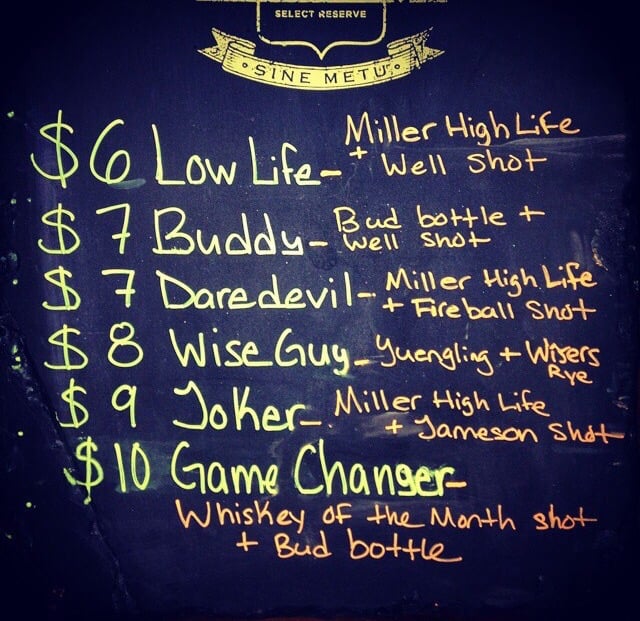 SELECT RESERVE
SINE METU
$6 Low Life- Miller High Life
+ Well Shot
$7 Buddy- Bud bottle +
Well Shot
$7 Daredevil- Miller High Life
+ Fireball Shot
$8 Wise Guy- Yuengling + Wisers
Rye
$9 Joker- Miller High Life
+ Jameson Shot
$10 Game Changer-
Whiskey of the Month shot
+ Bud bottle